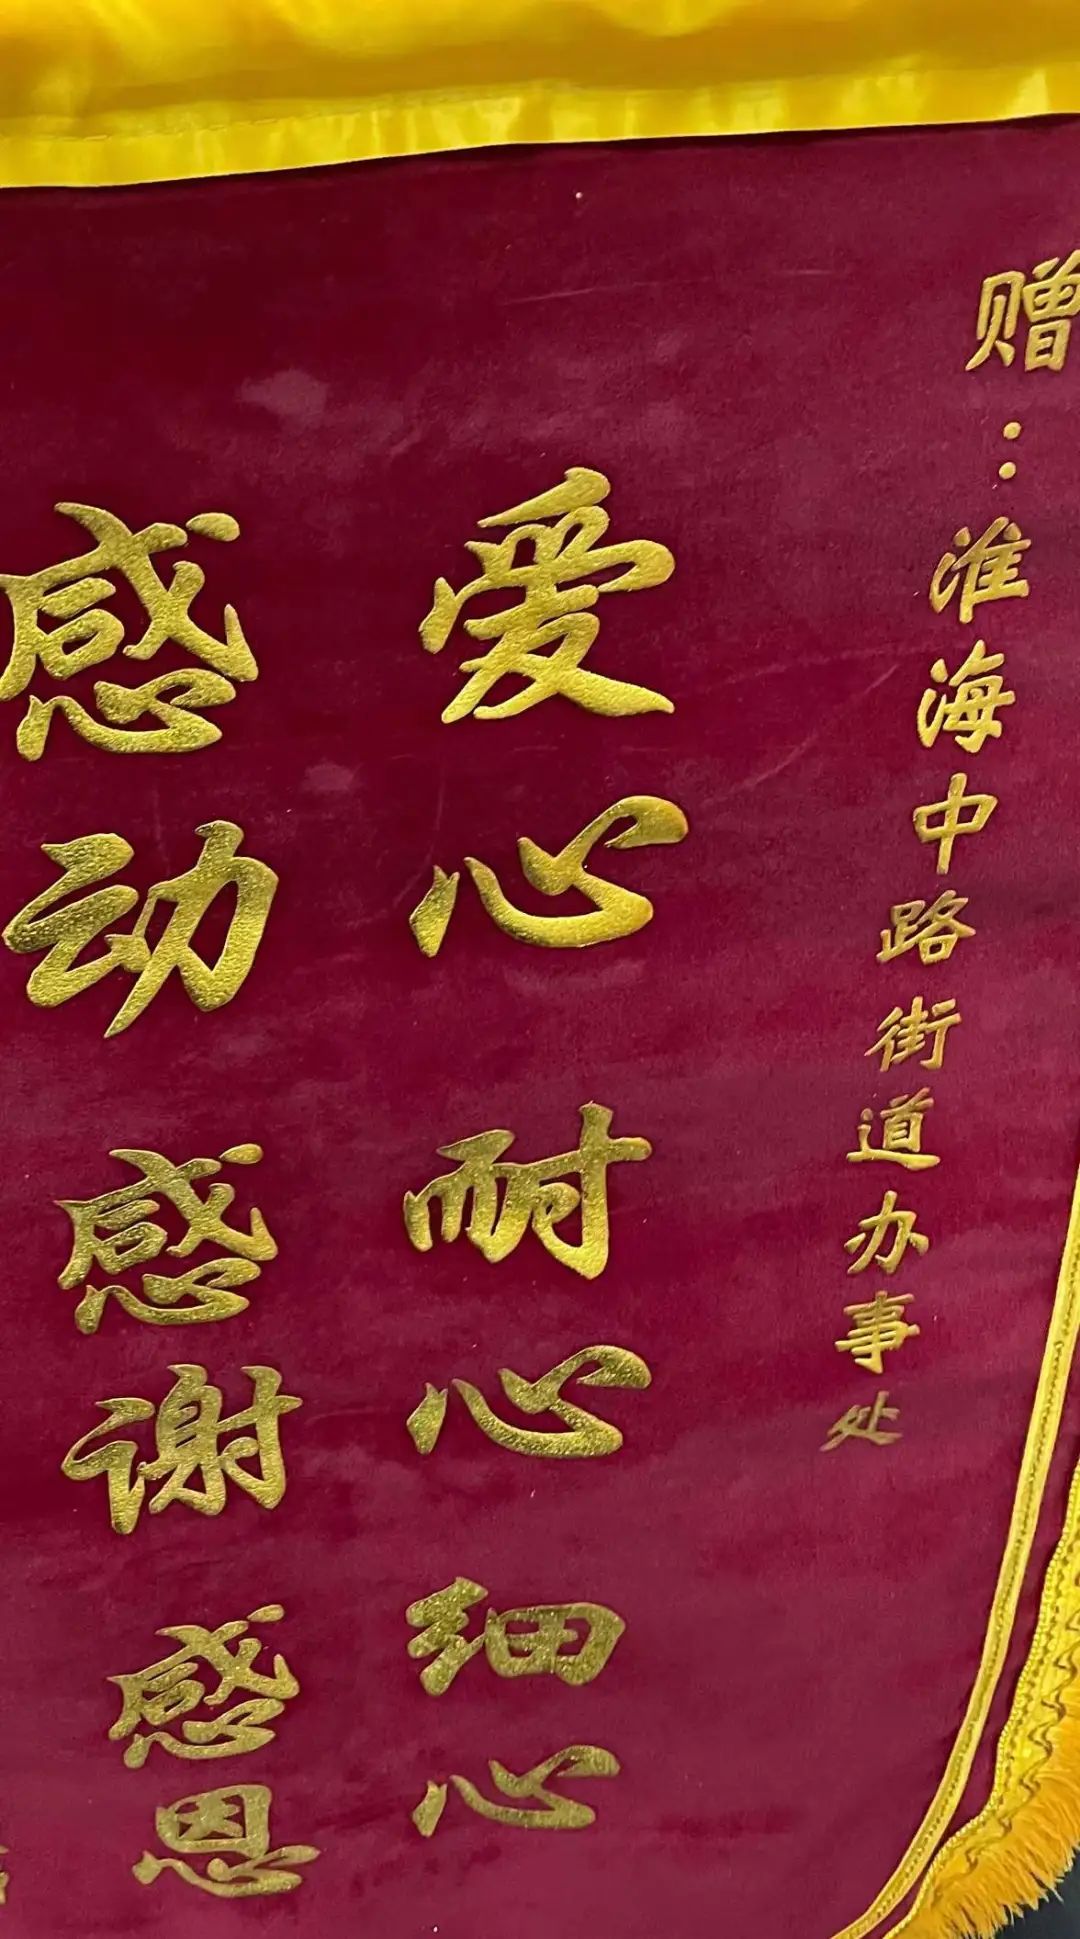 赠：淮海中路街道办事处
爱心 耐心 细心
感动 感谢 感恩